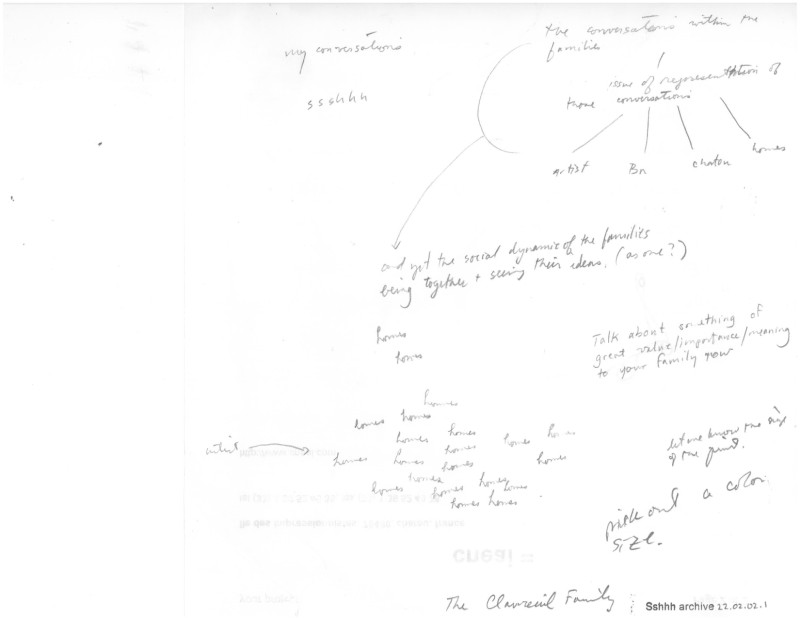 my conversations
ssshhh
the conversations within the
families
issue of representation of
those conversations
artist Bn chatou homes
and yet the social dynamic of the families
being together + seeing their ideas. (as one?)
homes
homes
Talk about something of
great value/importance/meaning
to your family now
homes
homes homes
homes homes homes homes
artist homes homes homes homes
homes
homes
homes homes homes homes
homes homes
let me know the size
of the print.
pick out a color
size.
cneai =
The Family
Sshhh archive 22.02.02.1